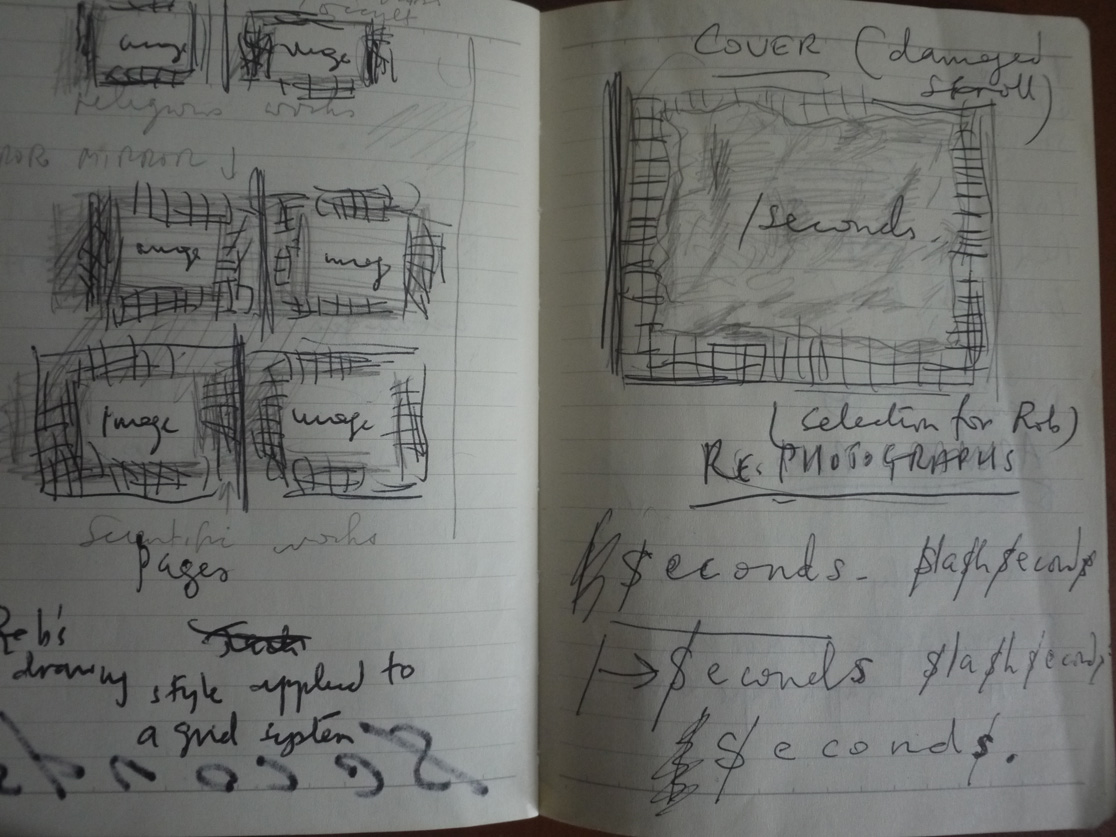 image image
religious works
MIRROR
image image
image image
Scientific works
Pages
Rob's
drawing style applied to
a grid system
Seconds
COVER (damaged
scroll)
/seconds.
(selection for Rob)
RE. PHOTOGRAPHS
$econds. $la$h $econd$
/→$econds $la$h $econds
$econd$.